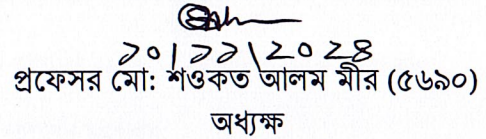 ১০।১১।২০২৪
প্রফেসর মো: শওকত আলম মীর (৫৬৯০)
অধ্যক্ষ